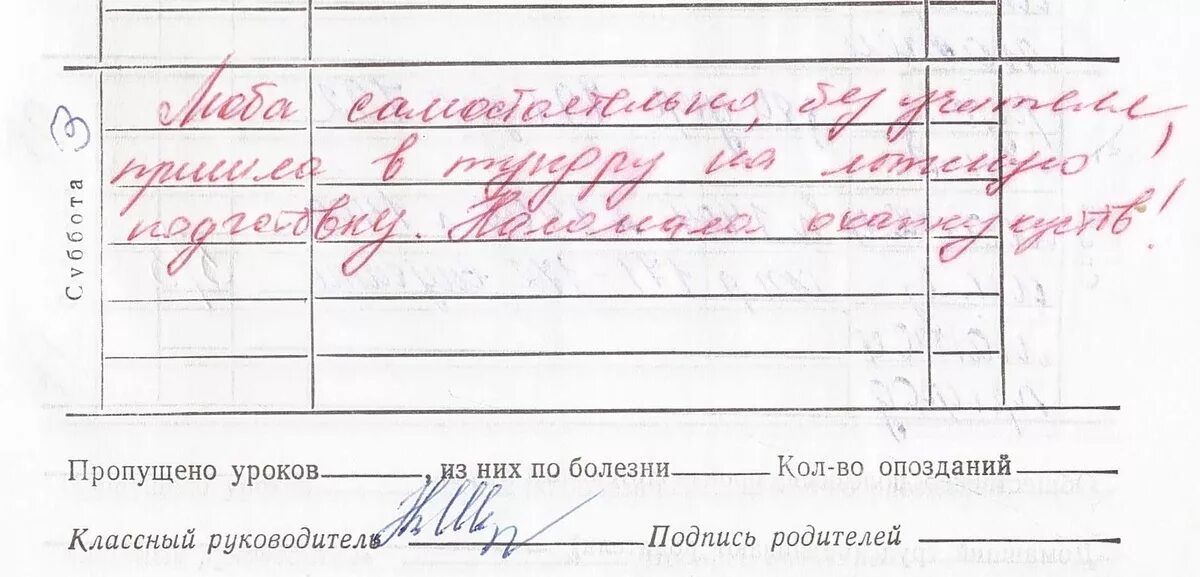 Суббота
Люба самостоятельно, без учителя,
пришла в тундру на лыжную
подготовку. Наломала охапку кустов!
Пропущено уроков , из них по болезни Кол-во опозданий
Классный руководитель Подпись родителей